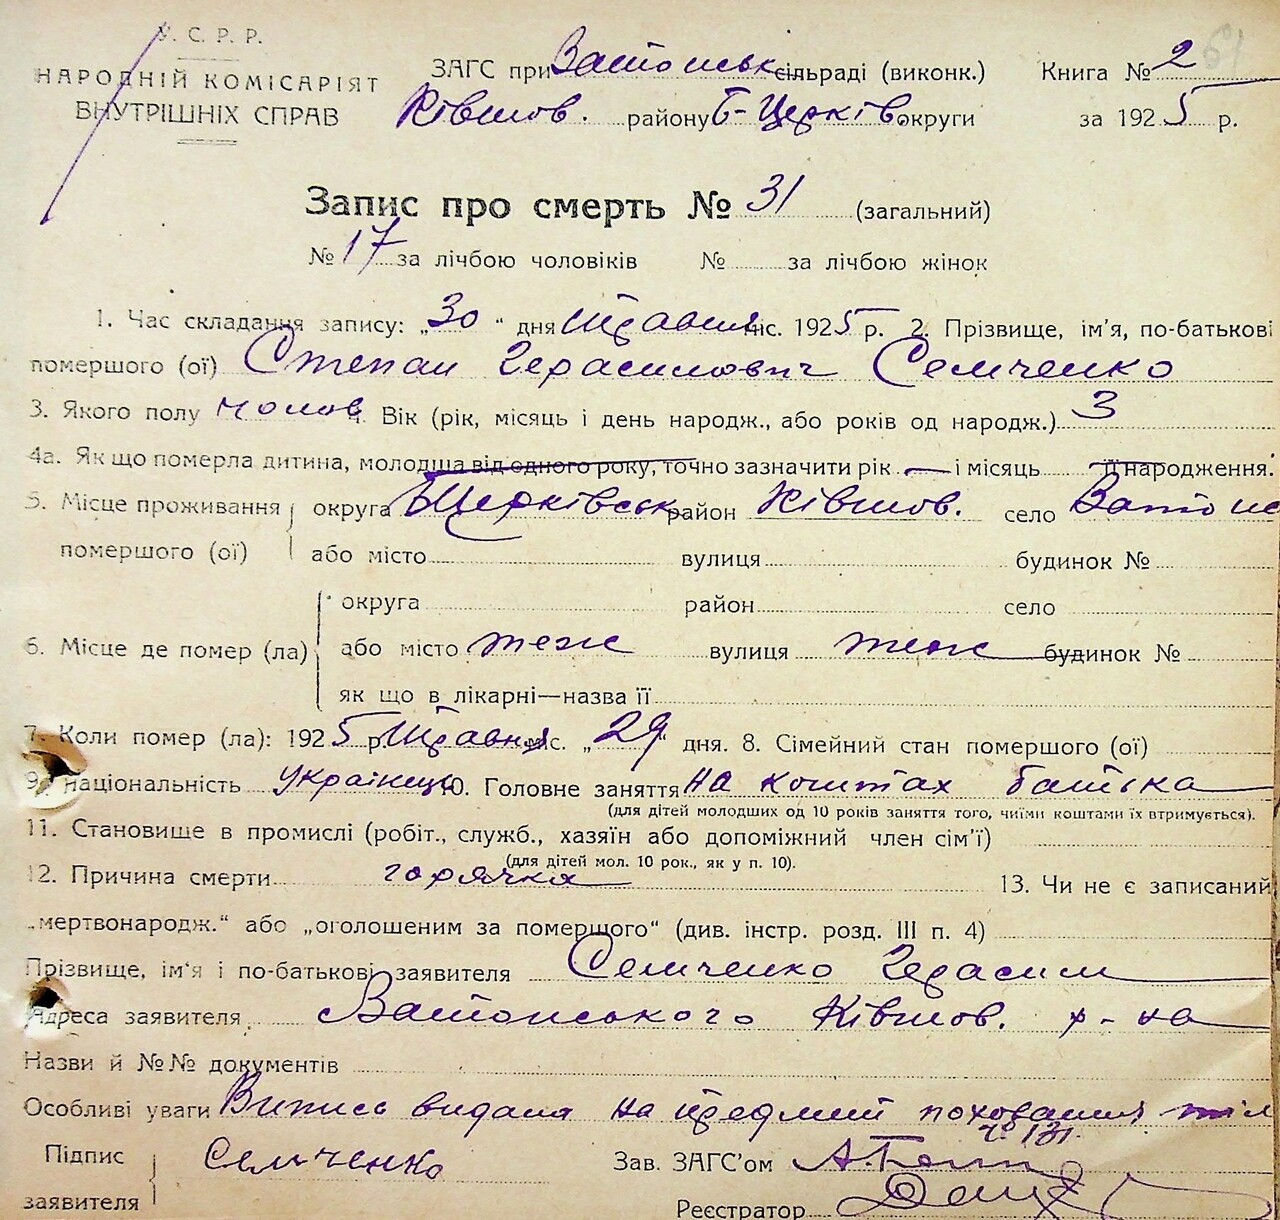 У. С. Р. Р.
НАРОДНІЙ КОМІСАРІЯТ
ВНУТРІШНІХ СПРАВ
ЗАГС при сільраді (виконк.) Книга № 2 61
Ківшов. району Б-Церків. округи за 1925 р.
Запис про смерть № 31 (загальний)
№ 17 за лічбою чоловіків № за лічбою жінок
1. Час складання запису: „30“ дня Травня міс. 1925 р. 2. Прізвище, ім'я, по-батькові
помершого (ої) Степан Герасимович Семченко
3. Якого полу чолов 4. Вік (рік, місяць і день народж., або років од народж.) 3
4а. Як що померла дитина, молодша від одного року, точно зазначити рік — і місяць її народження.
5. Місце проживання округа БЦерківськ район Ківшов. село
помершого (ої) або місто вулиця будинок №
округа район село
6. Місце де помер (ла) або місто теж вулиця теж будинок №
як що в лікарні—назва її
7. Коли помер (ла): 1925 р. Травня міс. „29“ дня. 8. Сімейний стан помершого (ої)
9. Національність українець 10. Головне заняття на коштах батька
(для дітей молодших од 10 років заняття того, чиїми коштами їх втримується).
11. Становище в промислі (робіт., служб., хазяїн або допоміжний член сім'ї)
(для дітей мол. 10 рок., як у п. 10).
12. Причина смерти горячка 13. Чи не є записаний
„мертвонародж.“ або „оголошеним за помершого“ (див. інстр. розд. III п. 4)
Прізвище, ім'я і по-батькові заявителя Семченко Герасим
Адреса заявителя Ківшов. р-на
Назви й №№ документів
Особливі уваги Випись видана на предмет поховання тіл
ч. 131.
Підпис Семченко Зав. ЗАГС'ом
заявителя Реєстратор